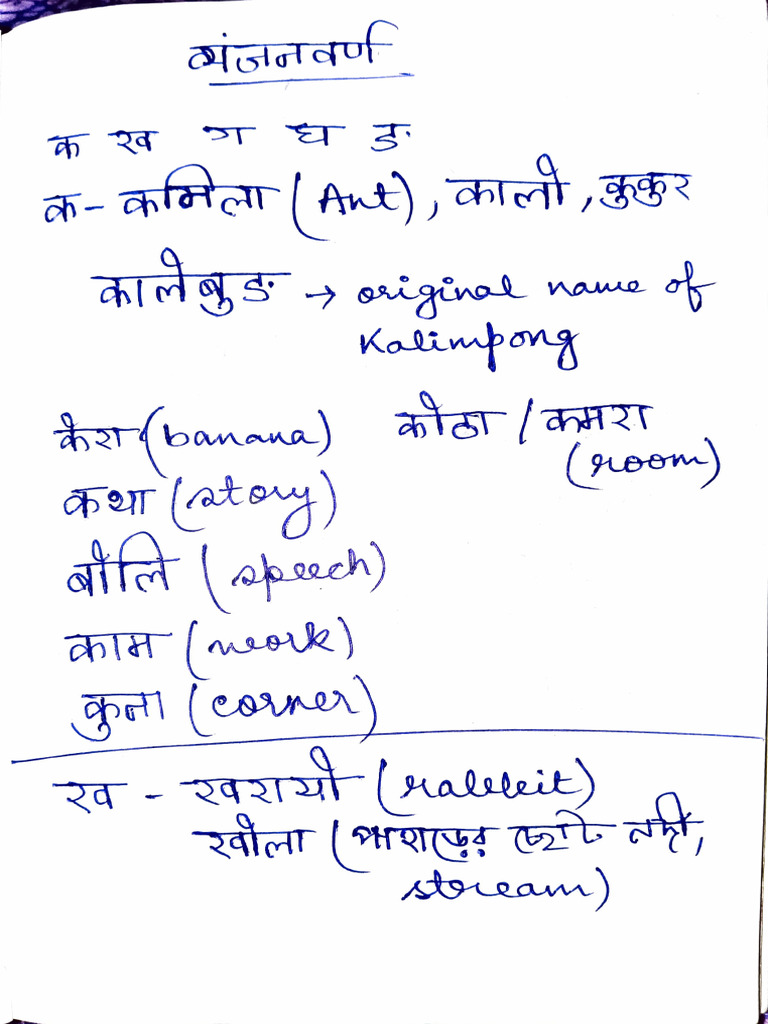 व्यंजनवर्ण
क ख ग घ ङ
क - कमिला (Ant), कालो, कुकुर
कालेबुङ → original name of
Kalimpong
केरा (banana) कोठा / कमरा
(room)
कथा (story)
बोलि (speech)
काम (work)
कुना (corner)
ख - खरायो (rabbit)
खोला (পাহাড়ের ছোট নদী,
stream)